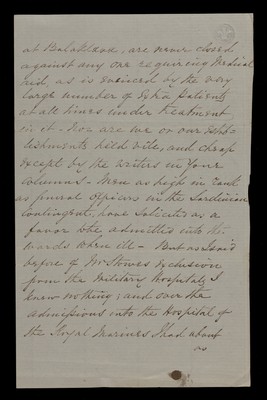 at Balaklava, are never closed
against any one requiring Medical
aid, as is evinced by the very
large number of Extra patients
at all times under treatment
in it - Nor are we or our Estab=
lishments held vile, and cheap
except by the writers in your
columns - Men as high in rank
as general officers in the Sardinian
Contingent, have solicited as a
favor to be admitted into the
wards when ill - But as I said
before of Mr Stowes exclusion
from the Military Hospitals, I
knew nothing; and over the
admissions into the Hospital of
the Royal Marines I had about
as